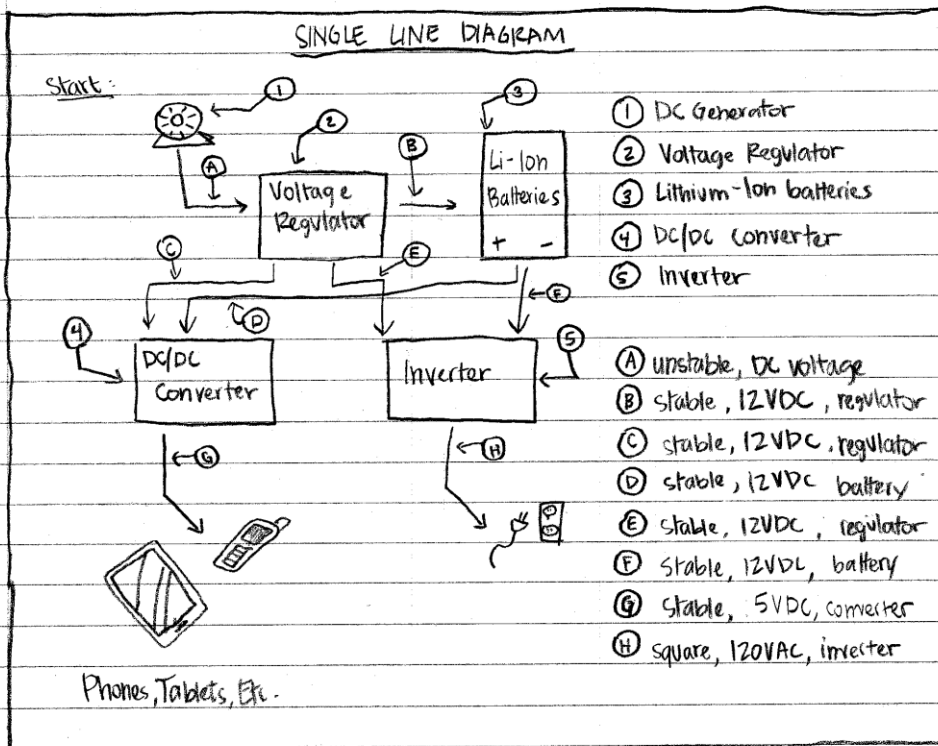 SINGLE LINE DIAGRAM
Start:
1
2
3
A
B
Voltage
Regulator
Li-Ion
Batteries
+ -
C
E
D
F
4
DC/DC
Converter
Inverter
5
G
H
Phones, Tablets, Etc.
1 DC Generator
2 Voltage Regulator
3 Lithium-Ion batteries
4 DC/DC converter
5 Inverter
A unstable, DC voltage
B stable, 12VDC, regulator
C stable, 12VDC, regulator
D stable, 12VDC battery
E stable, 12VDC, regulator
F stable, 12VDC, battery
G stable, 5VDC, converter
H square, 120VAC, inverter